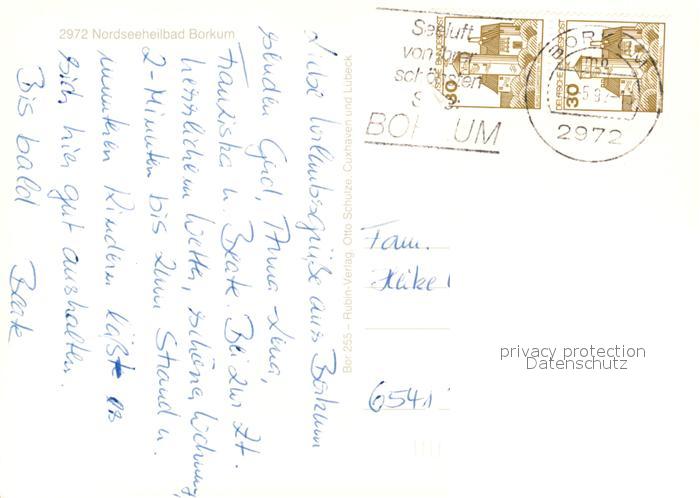 2972 Nordseeheilbad Borkum
Liebe Urlaubsgrüße aus Borkum
senden Gerd, Anna-Lena,
Franziska u. Beate. Bei zur Zt.
herrlichem Wetter, schöne Wohnung,
2-Minuten bis zum Strand u.
munteren Kindern läßt es
sich hier gut aushalten.
Bis bald Beate
Bor 255 – Rubin-Verlag, Otto Schulze, Cuxhaven und Lübeck
Seeluft
von ihrer
schönsten
S
BORKUM
30
DEUTSCHE BUNDESPOST
30
DEUTSCHE BUNDESPOST
BORKUM
2972
Fam.
Heike
6541
privacy protection
Datenschutz